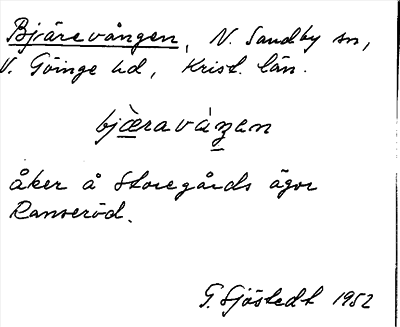 Bjärevången, N. Sandby sn,
V. Göinge hd, Krist. län.
bjæ̀raváŋen
åker å Storegårds ägor
Ranseröd.
G. Sjöstedt 1952